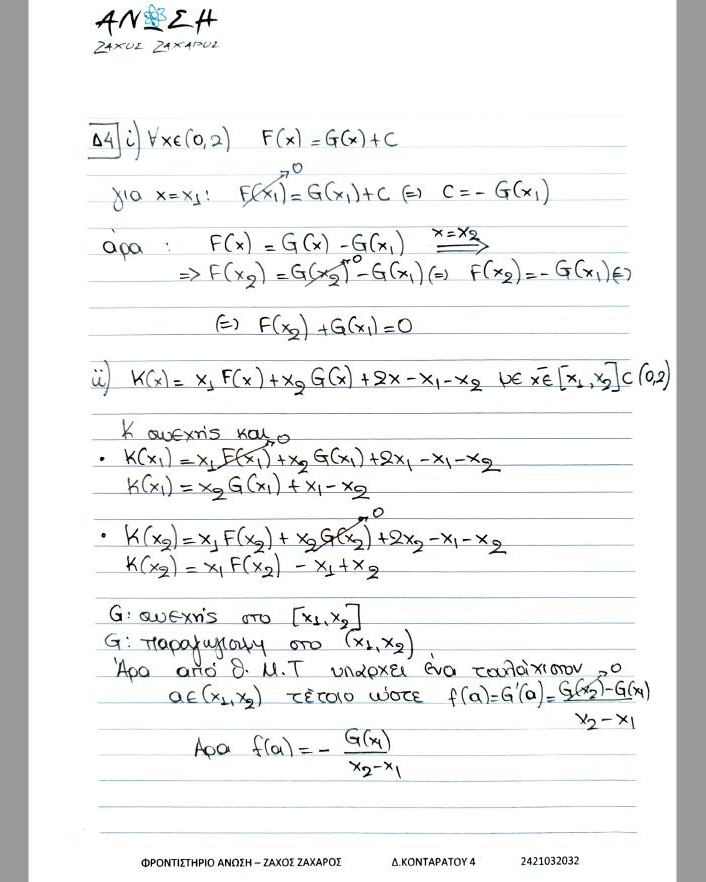 ΑΝΩΣΗ
ΖΑΧΟΣ ΖΑΧΑΡΟΣ
Δ4 i) ∀x∈(0,2) F(x) = G(x) + C
για x=x₁: F(x₁)→0 = G(x₁)+C ⇔ C = - G(x₁)
άρα : F(x) = G(x) - G(x₁) x=x₂ ⟹
=> F(x₂) = G(x₂)→0 - G(x₁) ⇔ F(x₂) = - G(x₁) ⇔
⇔ F(x₂) + G(x₁) = 0
ii) K(x) = x₁ F(x) + x₂ G(x) + 2x - x₁ - x₂ με x∈[x₁,x₂]⊂(0,2)
K συνεχής και
• K(x₁) = x₁ F(x₁)→0 + x₂ G(x₁) + 2x₁ - x₁ - x₂
K(x₁) = x₂ G(x₁) + x₁ - x₂
• K(x₂) = x₁ F(x₂) + x₂ G(x₂)→0 + 2x₂ - x₁ - x₂
K(x₂) = x₁ F(x₂) - x₁ + x₂
G: συνεχής στο [x₁,x₂]
G: παραγωγίσιμη στο (x₁,x₂)
Άρα από Θ.Μ.Τ υπάρχει ένα τουλάχιστον
α∈(x₁,x₂) τέτοιο ώστε f(α) = G'(α) = (G(x₂)→0 - G(x₁))/(x₂ - x₁)
Άρα f(α) = - G(x₁)/(x₂ - x₁)
ΦΡΟΝΤΙΣΤΗΡΙΟ ΑΝΩΣΗ – ΖΑΧΟΣ ΖΑΧΑΡΟΣ Δ.ΚΟΝΤΑΡΑΤΟΥ 4 2421032032